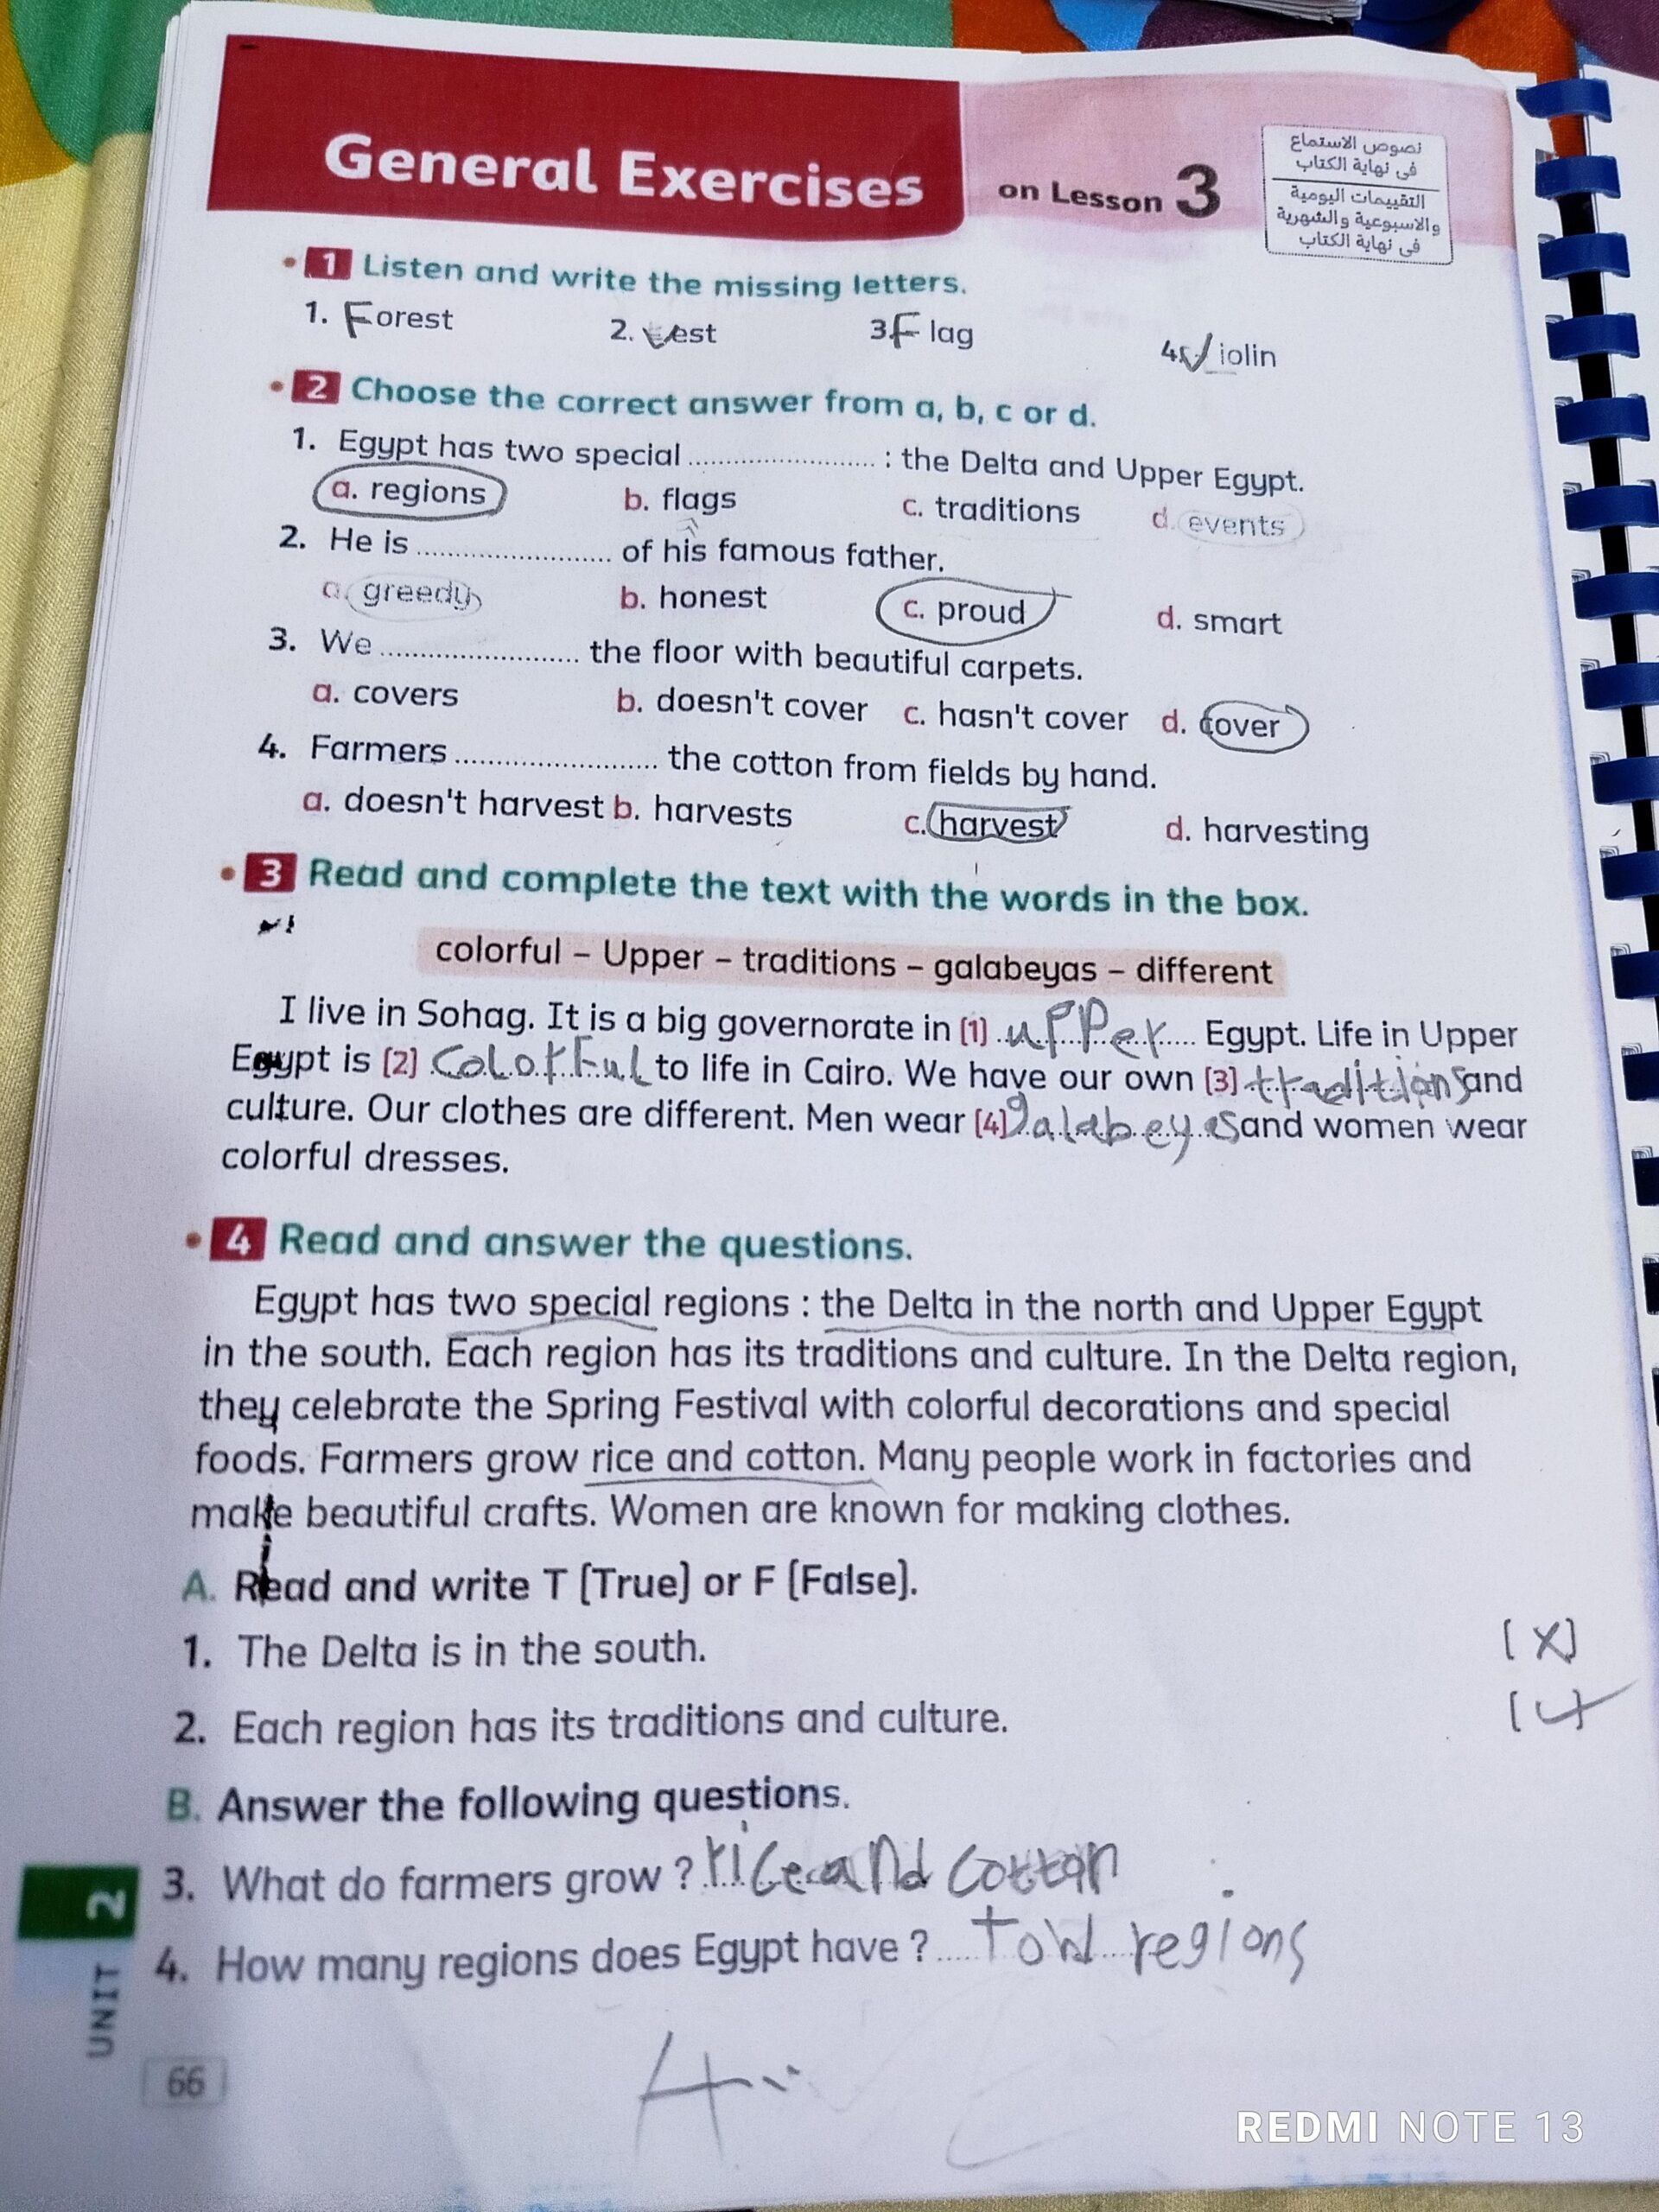 General Exercises on Lesson 3
نصوص الاستماع
فى نهاية الكتاب
التقييمات اليومية
والاسبوعية والشهرية
فى نهاية الكتاب
1 Listen and write the missing letters.
1. Forest 2. vest 3. Flag 4. Violin
2 Choose the correct answer from a, b, c or d.
1. Egypt has two special ........................ : the Delta and Upper Egypt.
a. regions b. flags c. traditions d. events
2. He is ........................ of his famous father.
a. greedy b. honest c. proud d. smart
3. We ........................ the floor with beautiful carpets.
a. covers b. doesn't cover c. hasn't cover d. cover
4. Farmers ........................ the cotton from fields by hand.
a. doesn't harvest b. harvests c. harvest d. harvesting
3 Read and complete the text with the words in the box.
colorful – Upper – traditions – galabeyas – different
I live in Sohag. It is a big governorate in (1) upper Egypt. Life in Upper
Egypt is (2) colorful to life in Cairo. We have our own (3) traditions and
culture. Our clothes are different. Men wear (4) galabeyas and women wear
colorful dresses.
4 Read and answer the questions.
Egypt has two special regions : the Delta in the north and Upper Egypt
in the south. Each region has its traditions and culture. In the Delta region,
they celebrate the Spring Festival with colorful decorations and special
foods. Farmers grow rice and cotton. Many people work in factories and
make beautiful crafts. Women are known for making clothes.
A. Read and write T (True) or F (False).
1. The Delta is in the south. (X)
2. Each region has its traditions and culture. (✓)
B. Answer the following questions.
3. What do farmers grow ? rice and cotton
4. How many regions does Egypt have ? tow regions
UNIT 2
66
REDMI NOTE 13